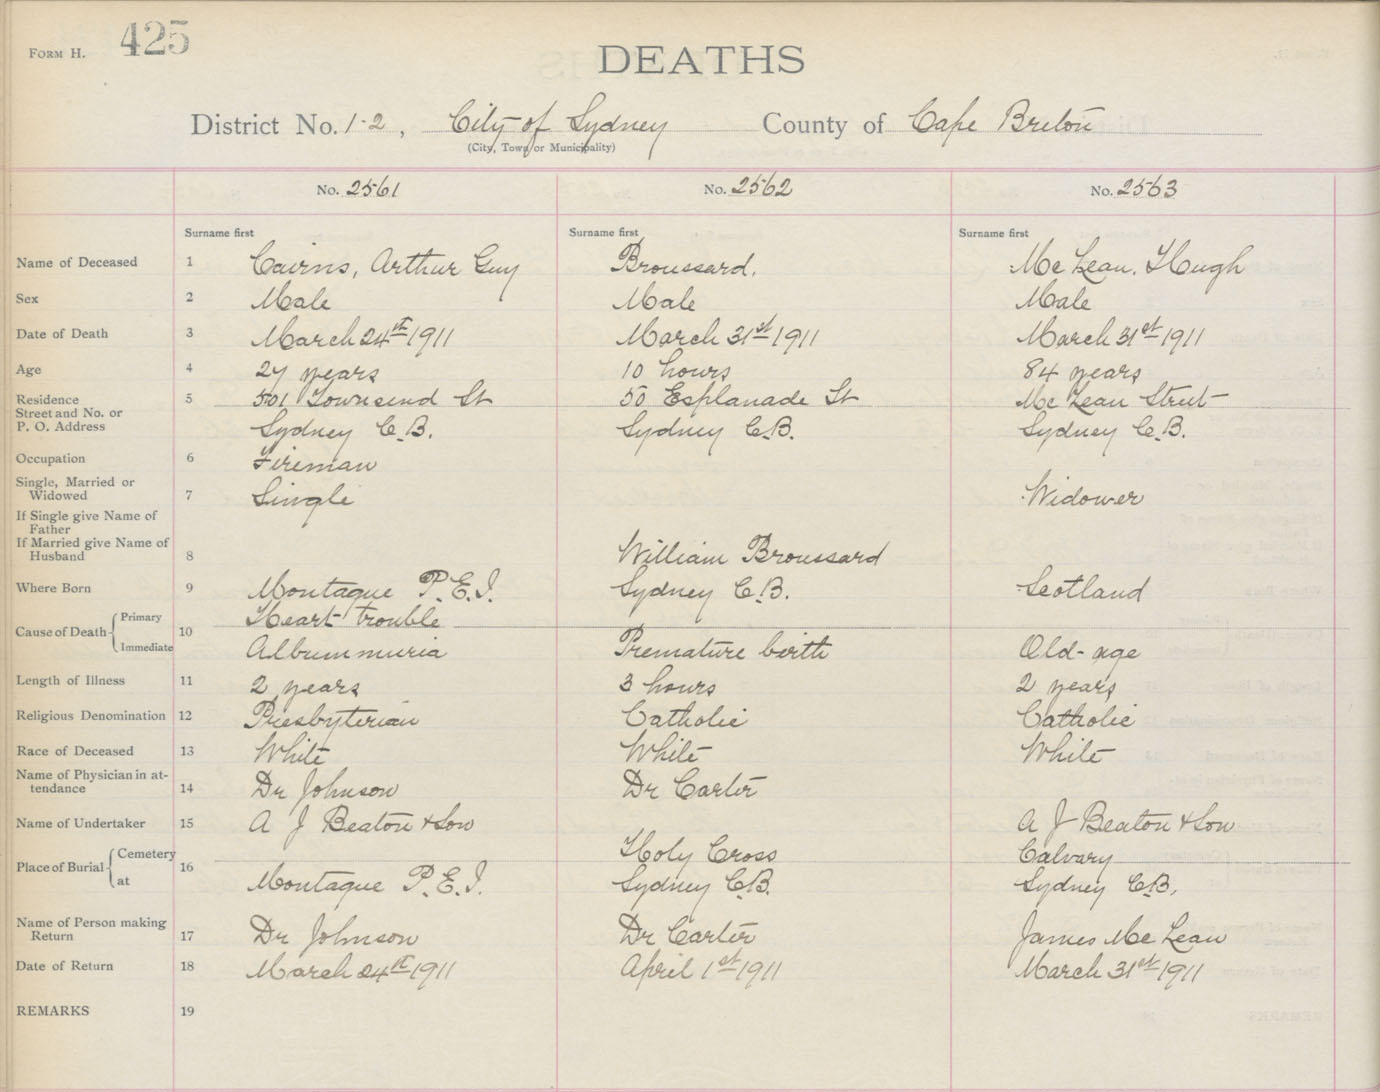 FORM H. 425
DEATHS
District No. 1-2, City of Sydney County of Cape Breton
(City, Town or Municipality)
No. 2561 No. 2562 No. 2563
Surname first Surname first Surname first
Name of Deceased 1 Cairns, Arthur Guy Broussard. McLean, Hugh
Sex 2 Male Male Male
Date of Death 3 March 24th 1911 March 31st 1911 March 31st 1911
Age 4 27 years 10 hours 84 years
Residence 5 501 Townsend St 50 Esplanade St McLean Street
Street and No. or
P. O. Address Sydney C.B. Sydney C.B. Sydney C.B.
Occupation 6 Fireman
Single, Married or
Widowed 7 Single Widower
If Single give Name of
Father
If Married give Name of
Husband 8 William Broussard
Where Born 9 Montague P.E.I. Sydney C.B. Scotland
Cause of Death Primary Heart trouble
10
Immediate Albummuria Premature birth Old-age
Length of Illness 11 2 years 3 hours 2 years
Religious Denomination 12 Presbyterian Catholic Catholic
Race of Deceased 13 White White White
Name of Physician in at-
tendance 14 Dr Johnson Dr Carter
Name of Undertaker 15 A J Beaton & Son A J Beaton & Son
Place of Burial Cemetery 16 Holy Cross Calvary
at Montague P.E.I. Sydney C.B. Sydney C.B.
Name of Person making
Return 17 Dr Johnson Dr Carter James McLean
Date of Return 18 March 24th 1911 April 1st 1911 March 31st 1911
REMARKS 19